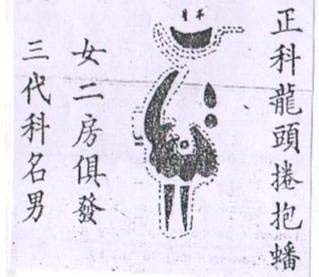 正科龍頭捲抱蟠
女二房俱發
三代科名男